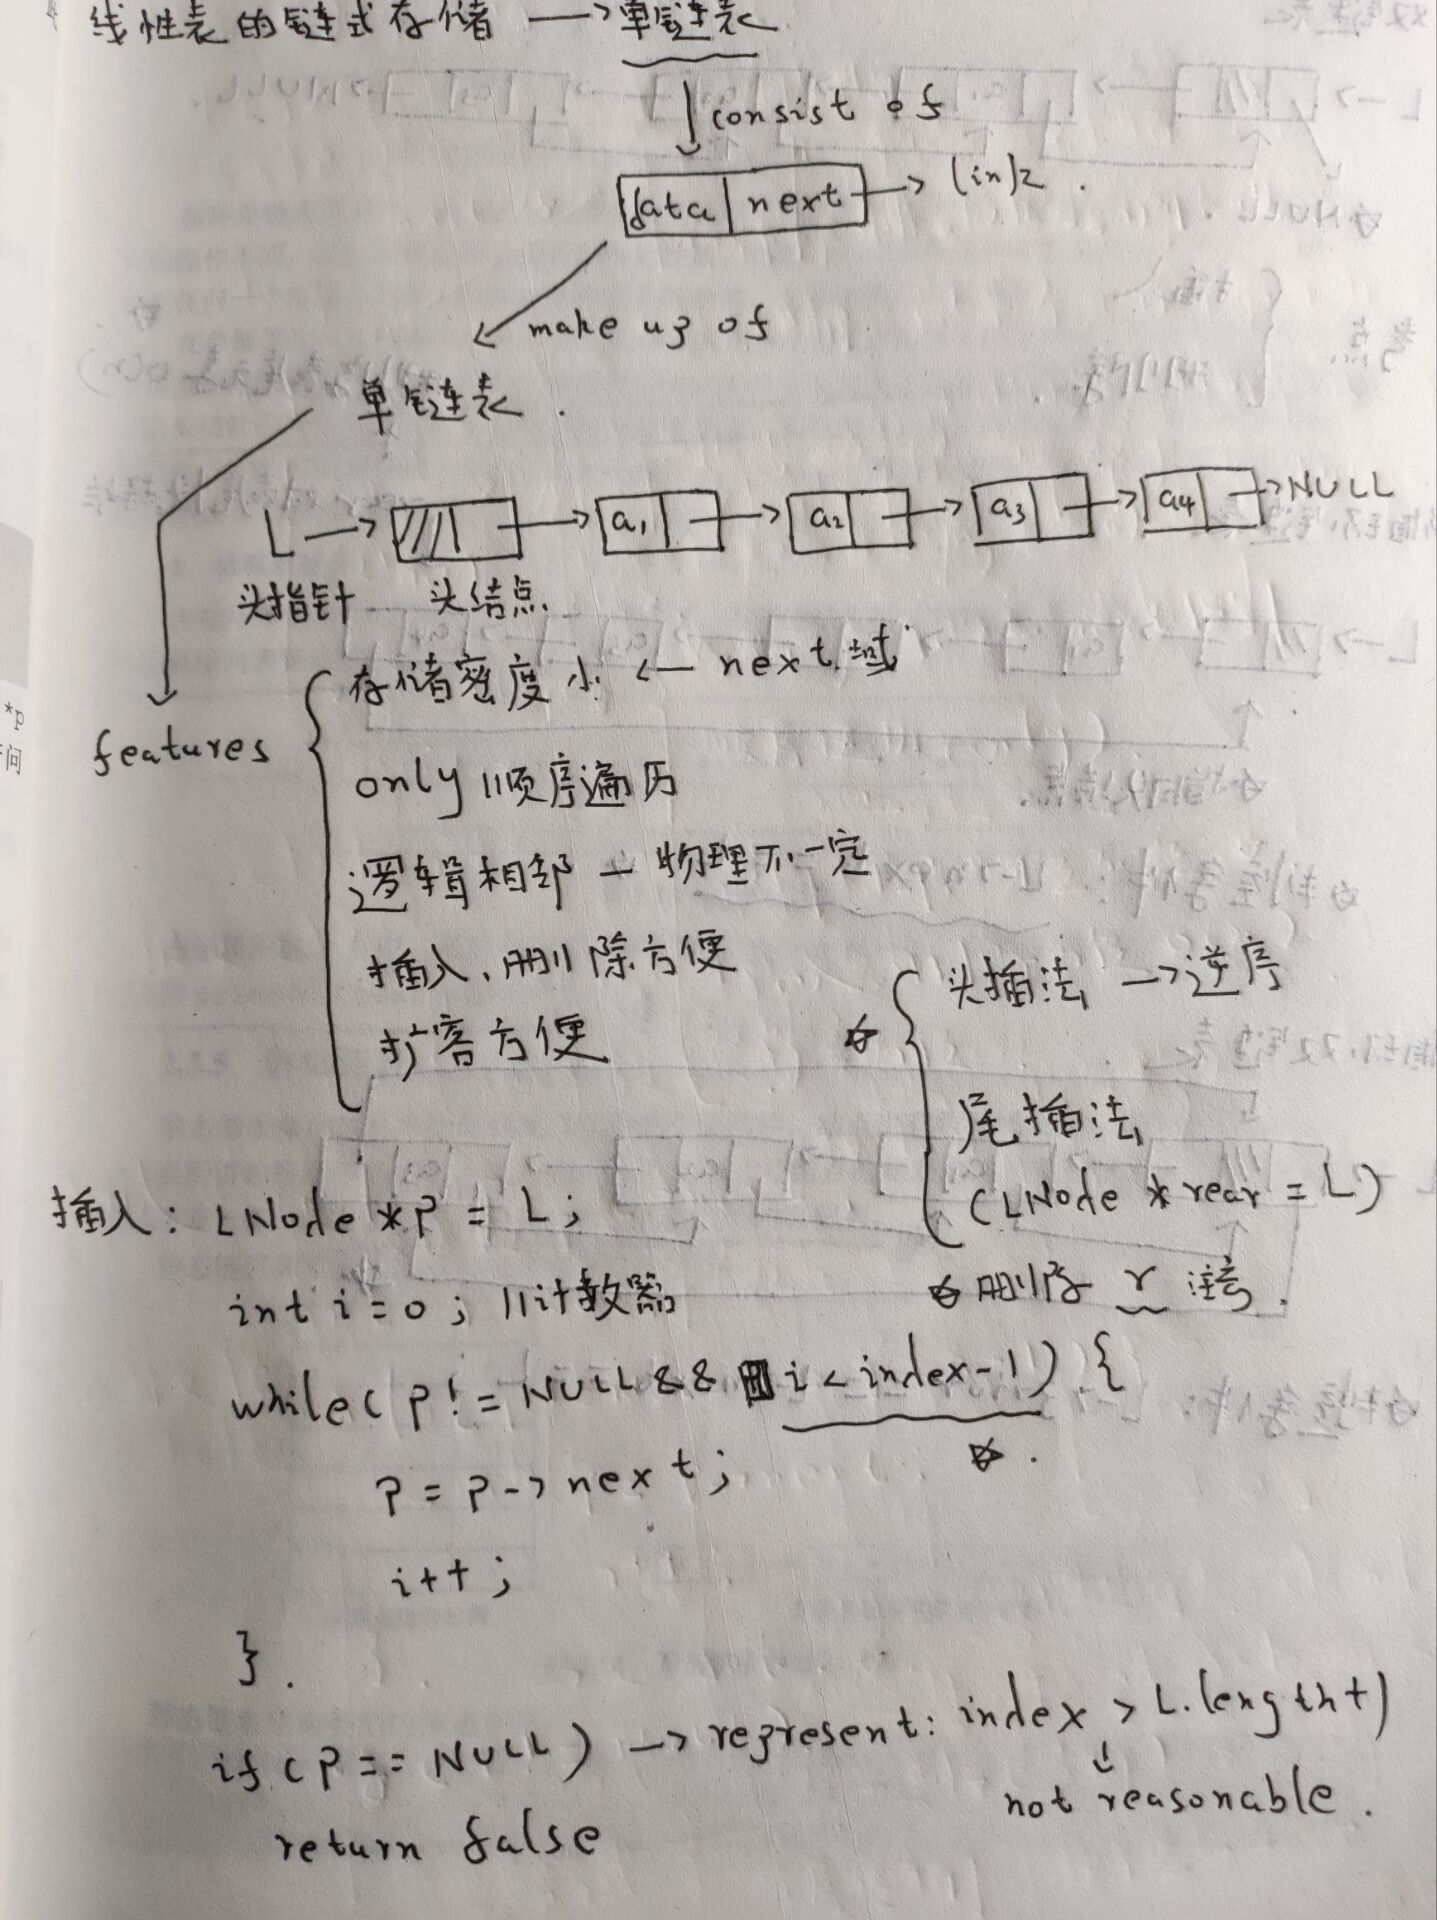 线性表的链式存储 → 单链表
consist of
data | next → link
make up of
单链表.
L → a1 → a2 → a3 → a4 → NULL
头指针 头结点.
features
存储密度小. ← next域
only 顺序遍历
逻辑相邻 — 物理不一定
插入、删除方便
扩容方便
☆ 头插法 → 逆序
尾插法
(LNode *rear = L)
☆ 删除 r 注意.
插入: LNode *P = L;
int i = 0; //计数器
while( P != NULL && i < index-1) {
☆.
P = P -> next;
i++;
}.
if (P == NULL) → represent: index > L.length+)
not reasonable.
return false
*p
问